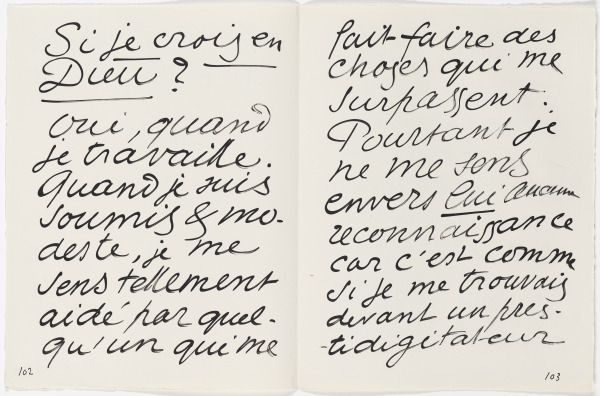 Si je crois en
Dieu ?
oui, quand
je travaille.
Quand je suis
soumis & mo-
deste, je me
sens tellement
aidé par quel-
qu'un qui me
102
fait faire des
choses qui me
surpassent.
Pourtant je
ne me sens
envers lui aucune
reconnaissance
car c'est comme
si je me trouvais
devant un pres-
tidigitateur
103